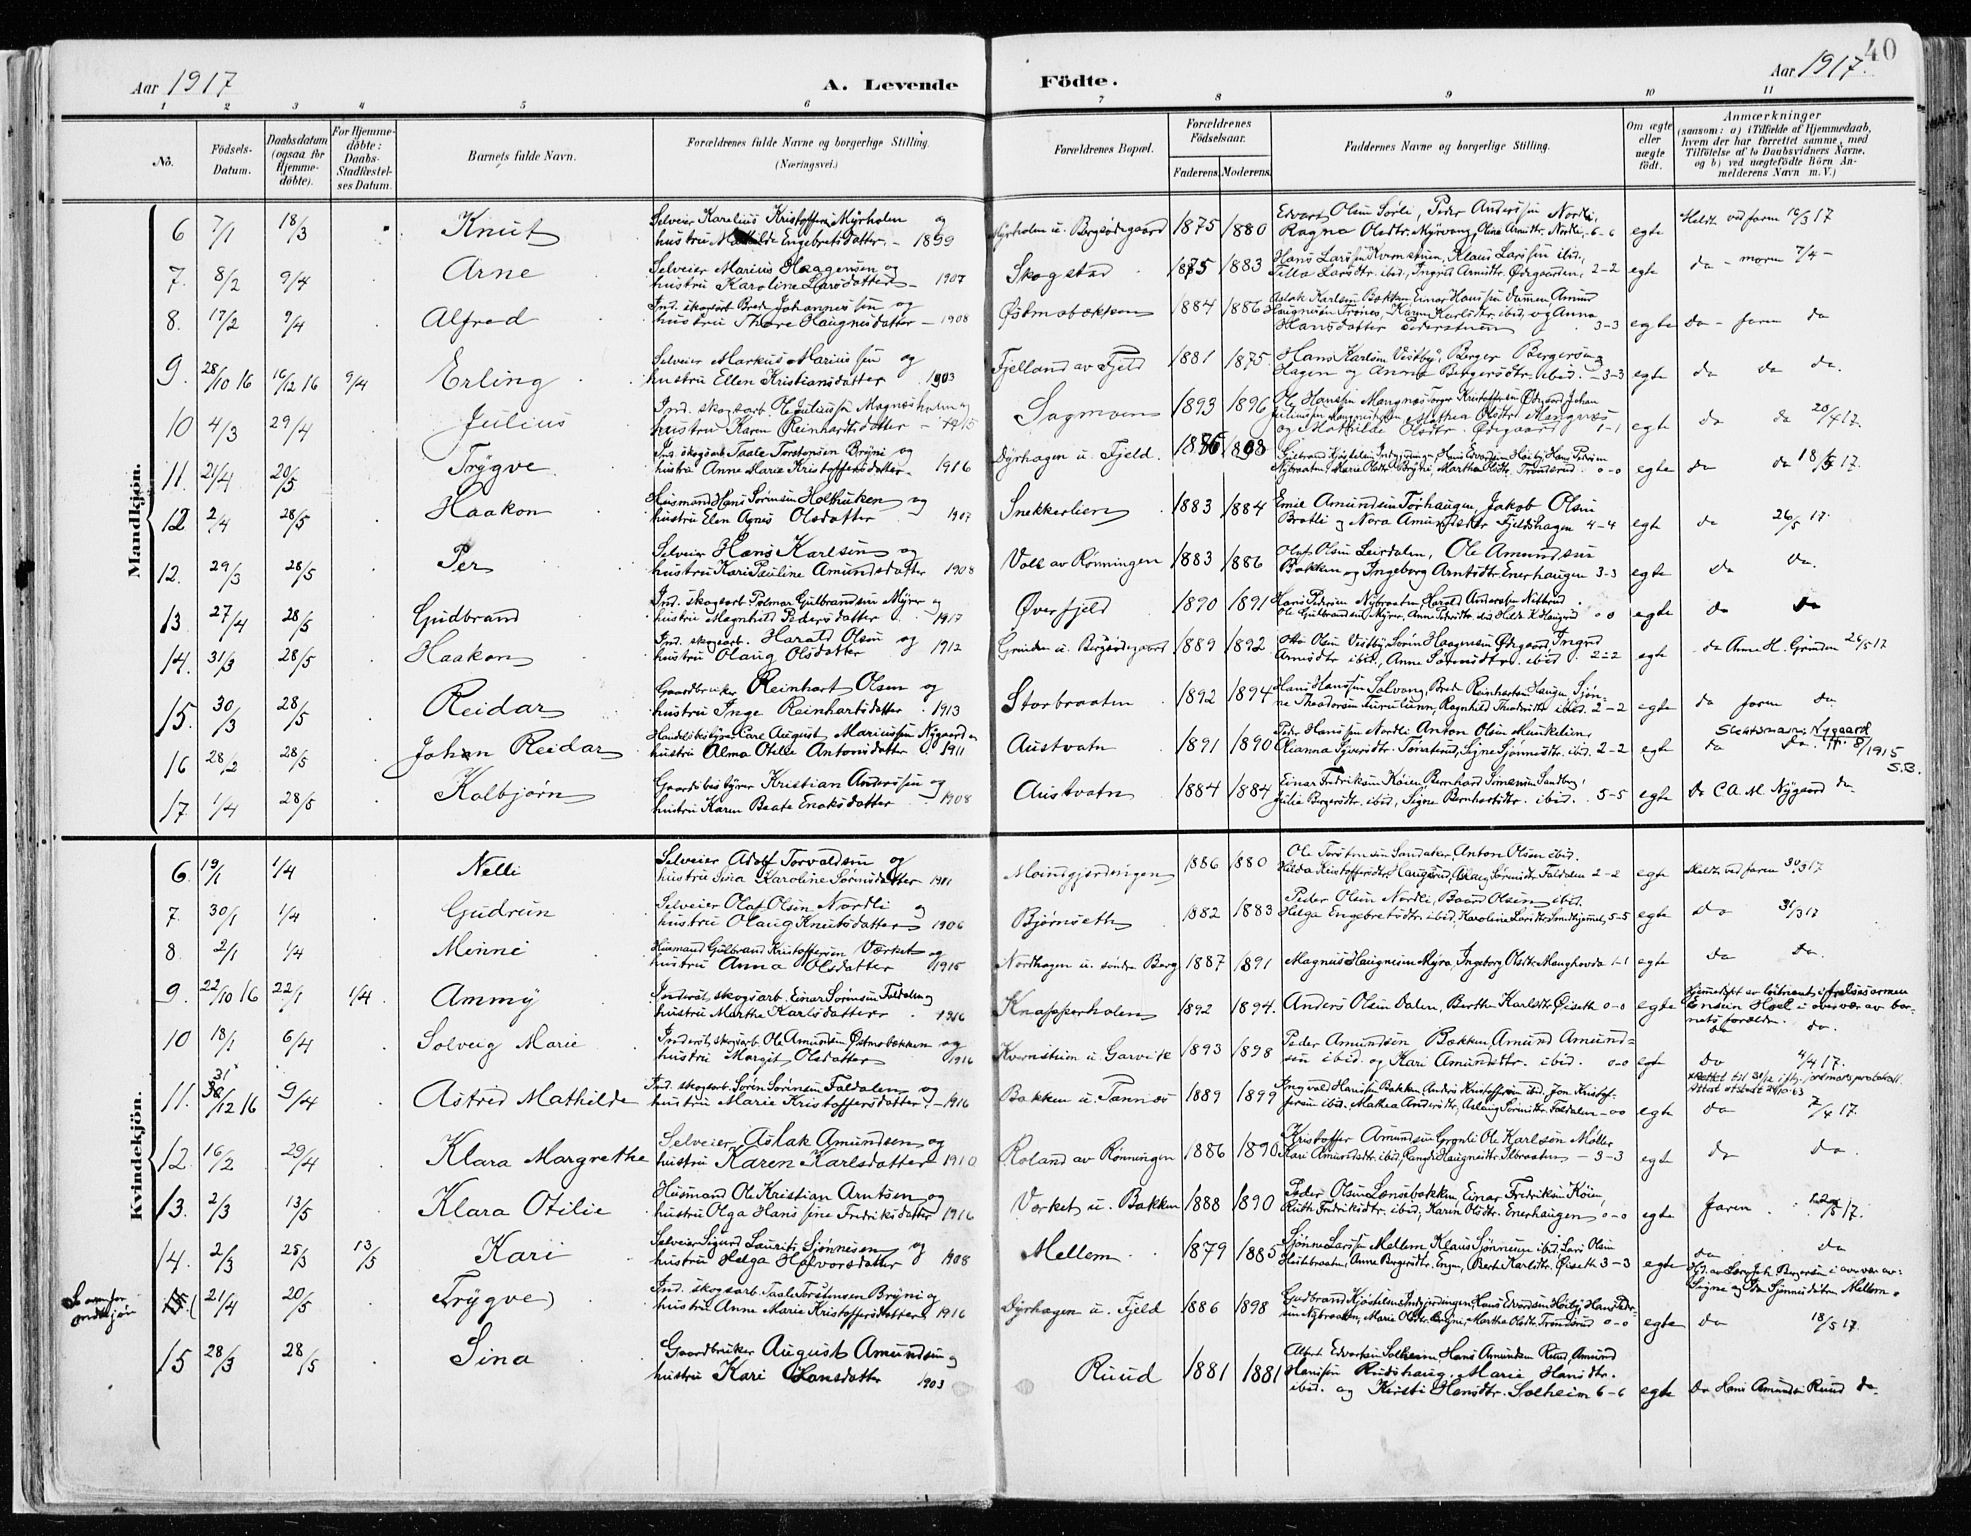 40
Aar 1917
A. Levende
Födte.
Aar 1917.
1 2 3 4 5 6 7 8 9 10 11
No.
Födsels-Datum.
Daabsdatum (ogsaa for Hjemme-döbte).
For Hjemme-döbte: Daabs-Stadfæstel-ses Datum.
Barnets fulde Navn.
Forældrenes fulde Navne og borgerlige Stilling. (Næringsvei.)
Forældrenes Bopæl.
Forældrenes Födselsaar.
Faderens. Moderens.
Faddernes Navne og borgerlige Stilling.
Om ægte eller uægte födt.
Anmærkninger (saasom: a) i Tilfælde af Hjemmedaab, hvem der har forrettet samme, med Tilföielse af to Daabsvidners Navne, og b) ved uægtefödte Börn An-melderens Navn m. V.)
Mandkjön.
6 7/1 18/3 Knut
Selveier Karelius Kristoffersen Myrholm og
hustru Mathilde Engebretsdatter. - 1899
Myrholm u. Bergsødegaard 1875 1880
Edvart Olsen Sørli, Peder Anderssen Nordli,
Ragna Olsdtr. Myrvang, Oline Arntdtr. Nordli, 6-6 egte
Meldt ved faren 16/3 17
7. 8/2 9/4 Arne
Selveier Marius Haagensen og
hustru Karoline Larsdatter - 1907
Skogstad 1875 1883
Hans Larssen Kvernstuen, Klaus Larssen ibid.,
Tilla Larsdtr. ibid., Ingrid Arnedtr. Ødegaarden, 2-2 egte
da - moren 7/4 -
8. 17/2 9/4 Alfred
Ind. skogsarb. Bred Johannessen og
hustru Thore Haugnesdatter - 1908
Østmobakken 1884 1886
Aslak Karlsen Bakken, Einar Hanssen Dammen, Amund
Haugnessen Trønes, Karen Karlsdtr. ibid, og Anna
Hansdatter 3-3 egte
da - faren da
9. 28/10 16 16/12 16 9/4 Erling
Selveier Markus Mariussen og
hustru Ellen Kristiansdatter 1903
Fjelland av Fjeld 1881 1875.
Hans Karlsen Vestby, Berger Bergersen
Hagen og Anna Bergersdtr. ibid. - 3-3 egte
da da da.
10 4/3 29/4 Julius
Ind. skogsarb. Ole Juliussen Magnesholm og
hustru Karen Reinhartsdatter - 1915
Sagmoen 1893 1896
Ole Hanssen Mangnæs, Kristoffersen Ødegaard, Johan
og Mathilde Olsdtr. Ødegaard 1-1 egte
da da 28/4 17.
11. 21/4 20/5 Trygve
Ind. skogsarb. Taale Torstensen Bryni og
hustru Anne Marie Kristoffersdatter 1916
Dyrhagen u. Fjeld. 1886 1898
Nybraaten, Marie Olsdtr. Bryni, Martha Olsdtr. Trondsrud. 0-0 egte
da da 18/5 17.
12 2/4 28/5 Haakon
Husmand Hans Sørensen Holthuken og
hustru Elen Agnes Olsdatter 1907
Snekkerlien 1883 1884
Emil Amundsen Torhaugen, Jakob Olsen
Bratli og Nora Amundsdtr Fjeldshagen 4-4 egte
da 26/5 17.
12. 29/3 28/5 Per
Selveier Hans Karlsen og
hustru Kari Pauline Amundsdatter 1908
Voll av Rønningen 1883 1886
Olaf Olsen Leirdalen, Ole Amundsen
Bakken og Ingeborg Arntsdtr. Enerhaugen 3-3 egte
da da.
13 27/4 28/5 Gudbrand
Ind. skogsarb. Polmar Gulbrandsen Myrer og
hustru Magnhild Pedersdatter 1917
Øverfjeld 1890 1891
Hans Pedersen Nybraaten, Harald Andersen
Ole Gulbrandsen Myrer, 0 0 egte
da da
14. 31/3 28/5 Haakon
Ind. skogsarb. Harald Olsen og
hustru Olaug Olsdatter 1912
Grinden u. Bergsødegaard 1889 1892
Otto Olsen Vestby, Søren Haagensen Ødegaard, Ingrid
Arnesdtr. ibid., Anne Sørensdtr. ibid. 2-2 egte
da Anne H. Grinden 26/5 17
15. 30/3 28/5 Reidar
Gaardbruker Reinhart Olsen og
hustru Inge Reinhartsdatter 1913
Storbraaten 1892 1894
Hans Hanssen Solvang, Bred Reinhartsen Haugen, Sjøn-
ne Theodorsen Furulunn, Ragnhild Theodorsdtr. ibid. 2-2 egte
da faren da
16 28/2 28/5 Johan Reidar
Handelsbestyrer Carl August Mariussen Nygaard og
hustru Alma Otilie Antonsdatter 1911
Austvatn 1891 1890
Peder Hanssen Nordli, Anton Olsen Munkelien,
Signe Sjønnesdtr. ibid. 2-2 egte
Slektsnavn: Nygaard
da da 8/1915
S.B.
17 1/4 28/5 Kolbjørn
Gaardsbestyrer Kristian Anderssen og
hustru Karen Beate Enoksdatter - 1908
Austvatn 1884 1884
Einar Fredriksen Køien, Bernhard Simensen Sandberg,
Julie Bergersdtr. ibid, Signe Bernhardsdtr. ibid. 5-5 egte
da C.A. M. Nygaard da
Kvindekjön.
6. 19/1 1/4 Nelli
Selveier Adolf Torvaldsen og
hustru Sina Karoline Sørensdatter 1911
Moinsgjerdingen 1886 1880
Ole Torstensen Sandaker, Anton Olsen ibid.
Hilda Kristoffersdtr. Haugsrud, Aslaug Sørensdtr. Faldalen 2-2 egte
Meldt ved faren 30/3 17
7 30/1 1/4 Gudrun
Selveier Olaf Olsen Nordli og
hustru Olaug Knutsdatter 1906
Bjørnseth 1882 1883
Peder Olsen Nordli, Baard Olsen ibid.
Helga Engebretsdtr. ibid, Karoline Larsdtr. Smedhjemmet, 5-5 egte
da 31/3 17
8 2/1 1/4 Minni
Husmand Gulbrand Kristoffersen Værket og
hustru Anna Olsdatter 1915
Nordhagen u. søndre Berg 1887 1891
Magnus Haugnesen Myra, Ingeborg Olsdtr. Manghovda 1-1 egte
da da.
9 22/10 16 22/1 1/4 Ammy
Inderst, skogsarb. Einar Sørensen Faldalen og
hustru Marthe Karlsdatter 1916
Knapperholen 1892 1894.
Anders Olsen Dalen, Berthe Karlsdtr. Øiseth 0-0 egte
Hjemmedøpt av løitnant i frelsesarmeen
Ensein Hoel i overvær av bar-
nets forældre.
da da.
10 18/1 6/4 Solveig Marie
Inderst, skogsarb. Ole Amundsen Østmobakken og
hustru Margit Olsdatter 1916
Kvernstuen u. Garvik 1893 1898
Peder Amundsen Bakken, Amund Amund-
sen ibid. og Kari Amundsdtr. ibid. 0-0 egte
da 4/4 17.
11. 31/12 16 9/4 Astrid Mathilde
Ind. skogsarb. Søren Sørensen Faldalen og
hustru Marie Kristoffersdatter - 1916
Bakken u. Tannes 1889 1899
Ingvald Hanssen Bakken, Anders Kristoffersen ibid, Jon Kristof-
fersen ibid. Mathea Andersdtr., Aslaug Sørensdtr. Faldalen - 00 egte
x Rettet til 31/12 iflg. jordmors protokoll.
Attest utstedt
da 7/4 17.
12. 16/2 29/4 Klara Margrethe
Selveier Aslak Amundsen og
hustru Karen Karlsdatter 1910
Roland av Rønningen 1886 1890
Kristoffer Amundsen Grønli, Ole Karlsen Møller,
Kari Amundsdtr. ibid, Haugnesdtr. Ilbraaten - 3-3 egte
da da.
13. 2/3 13/5 Klara Otilie
Husmand Ole Kristian Arntsen og
hustru Olga Hansine Fredriksdatter 1916
Vorket u. Bakken 1888 1890
Peder Olsen Lønsebakken, Einar Fredriksen Køien,
Ruth Fredriksdtr. ibid, Karen Olsdtr. Enerhaugen 0-0 egte
Faren 12/5 17.
14. 2/3 25/3 13/5 Kari
Selveier Sigurd Laurits Sjønnesen og
hustru Helga Halvorsdatter 1908
Mellem 1879 1885
Sjønne Larssen Mellem, Klaus Sjønnesen ibid, Lars Olsen
Heitebraaten, Anne Bergersdtr. Engen, Berthe Karlsdtr. Øiseth 3-3 egte
da da
Hjd. av Lars Joh. Bergersen i overvær av:
Signe og Ida Sjønnesdatter Mellem.
15 (21/4 20/5 Trygve)
Ind. skogsarb. Taale Torstensen Bryni og
hustru Anne Marie Kristoffersdatter 1916
Dyrhagen u. Fjeld 1886 1898
Gudbrand Kjøstilsen Indgjerdingen, Hans Edvardsen Høiby, Hans Peder-
sen Nybraaten, Marie Olsdtr. Bryni, Martha Olsdtr. Trondsrud 0-0 egte
da 18/5 17.
15 28/3 28/5 Sina
Gaardbruker August Amundsen og
hustru Kari Hansdatter 1903
Ruud 1881 1881
Albert Edvartsen Solheim, Hans Amundsen Ruud, Amund
Hanssen Rudshaug, Marie Hansdtr.
ibid. og Kirsti Hansdtr. Solheim 6-6 egte
da Hans Amundsen Ruud da